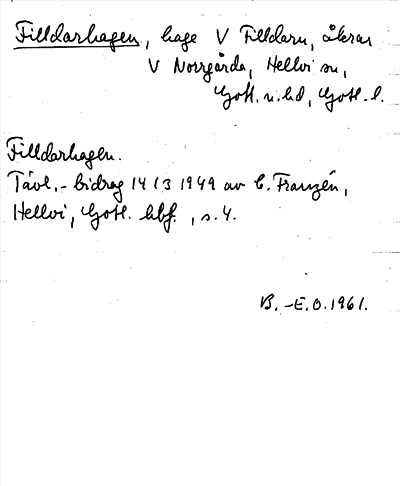 Filldarhagen, hage V Filldarn, åkrar
V Norrgårda, Hellvi sn,
Gotl. n. hd, Gotl. l.
Filldarhagen.
Tävl.-bidrag 14/3 1949 av C. Franzén,
Hellvi, Gotl. hbf., s. 4.
B.-E.O. 1961.